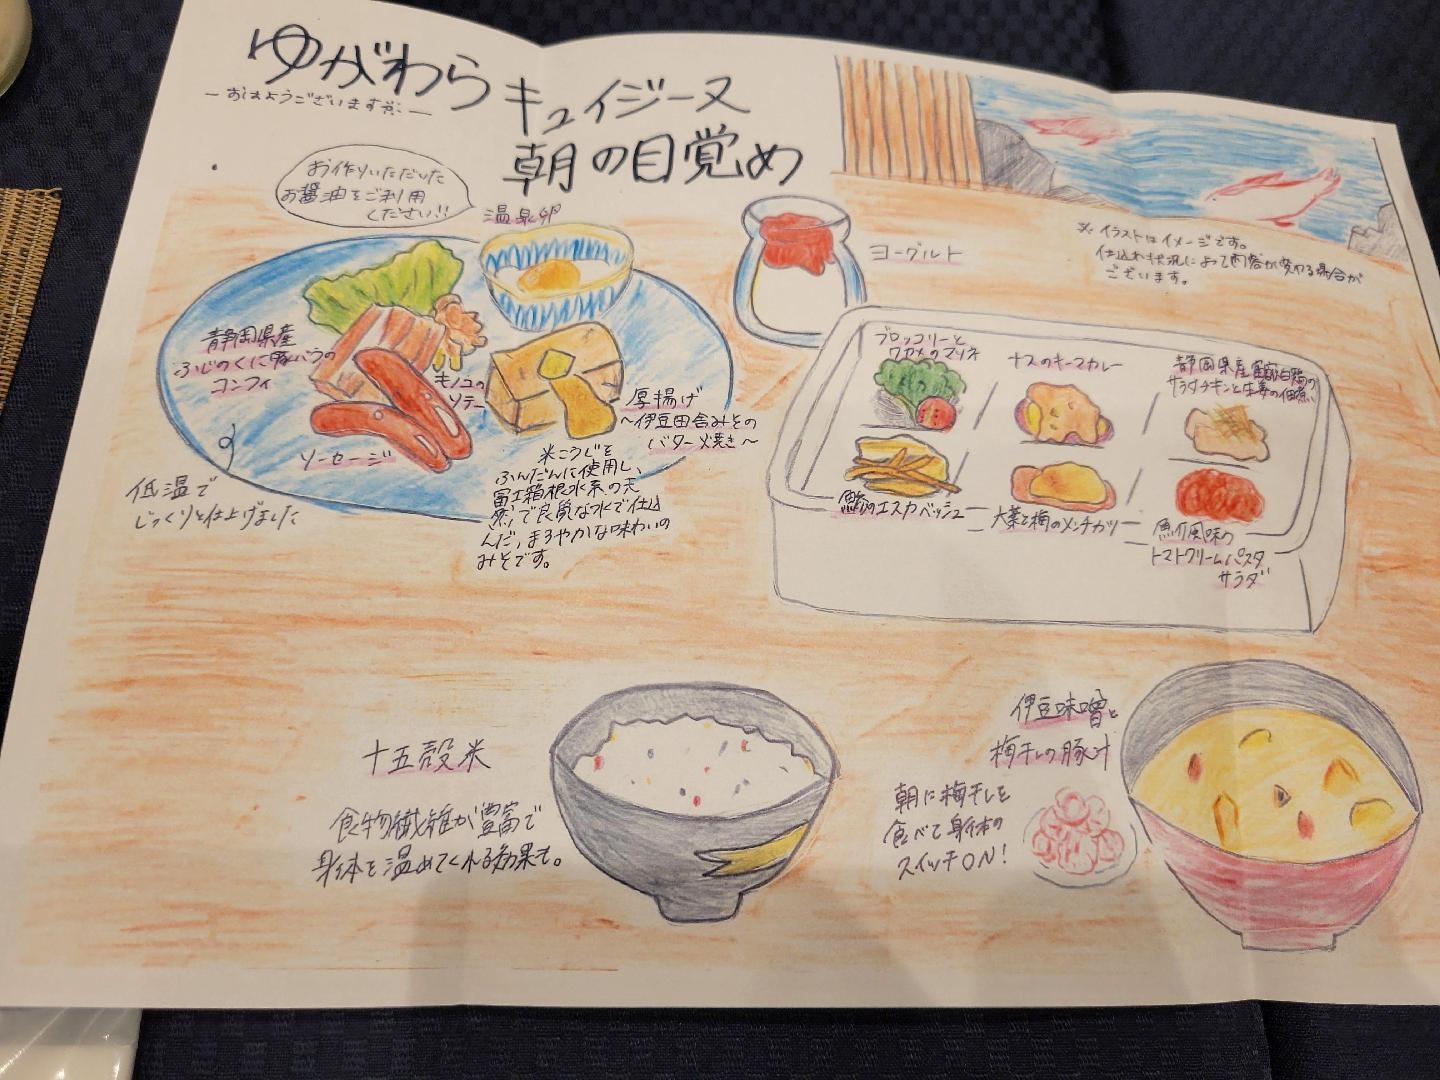 ゆがわら
キュイジーヌ
朝の目覚め
お作りいただいた
お醤油をご利用
ください!!
温泉卵
ヨーグルト
※イラストはイメージです。
仕込み状況によって内容が変わる場合が
ございます。
静岡県産
ふじのくに豚バラの
コンフィ
キノコの
ソテー
厚揚げ
～伊豆田舎みその
バター焼き～
ソーセージ
低温で
じっくりと仕上げました
米こうじを
ふんだんに使用し、
富士箱根水系の天
然で良質な水で仕込
んだ、まろやかな味わいの
みそです。
ブロッコリーと
ワカメのマリネ
ナスのキーマカレー
静岡県産
サラダチキンと生姜の佃煮
鯵のエスカベッシュ
大葉と梅のメンチカツ
魚介風味の
トマトクリームパスタ
サラダ
十五穀米
食物繊維が豊富で
身体を温めてくれる効果も。
伊豆味噌と
梅干しの豚汁
朝に梅干しを
食べて身体の
スイッチON!